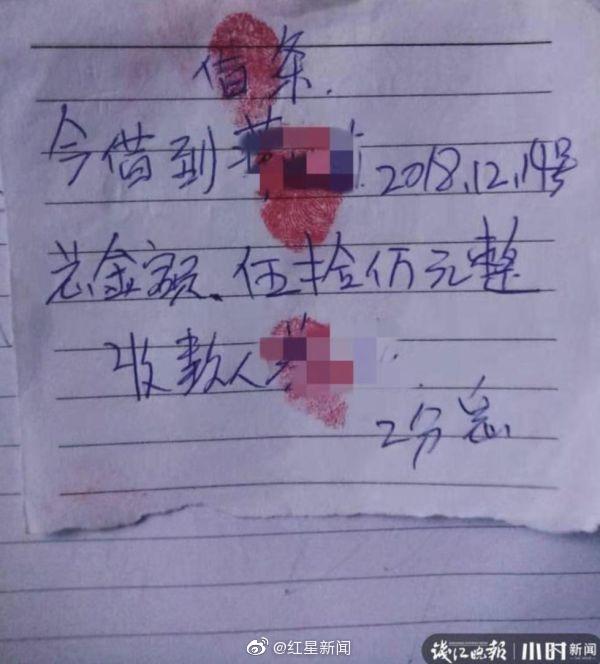 借条.
今借到 2018.12.14号
总金额、伍拾仟元整
收款人
2分总
@红星新闻
钱江晚报 小时新闻